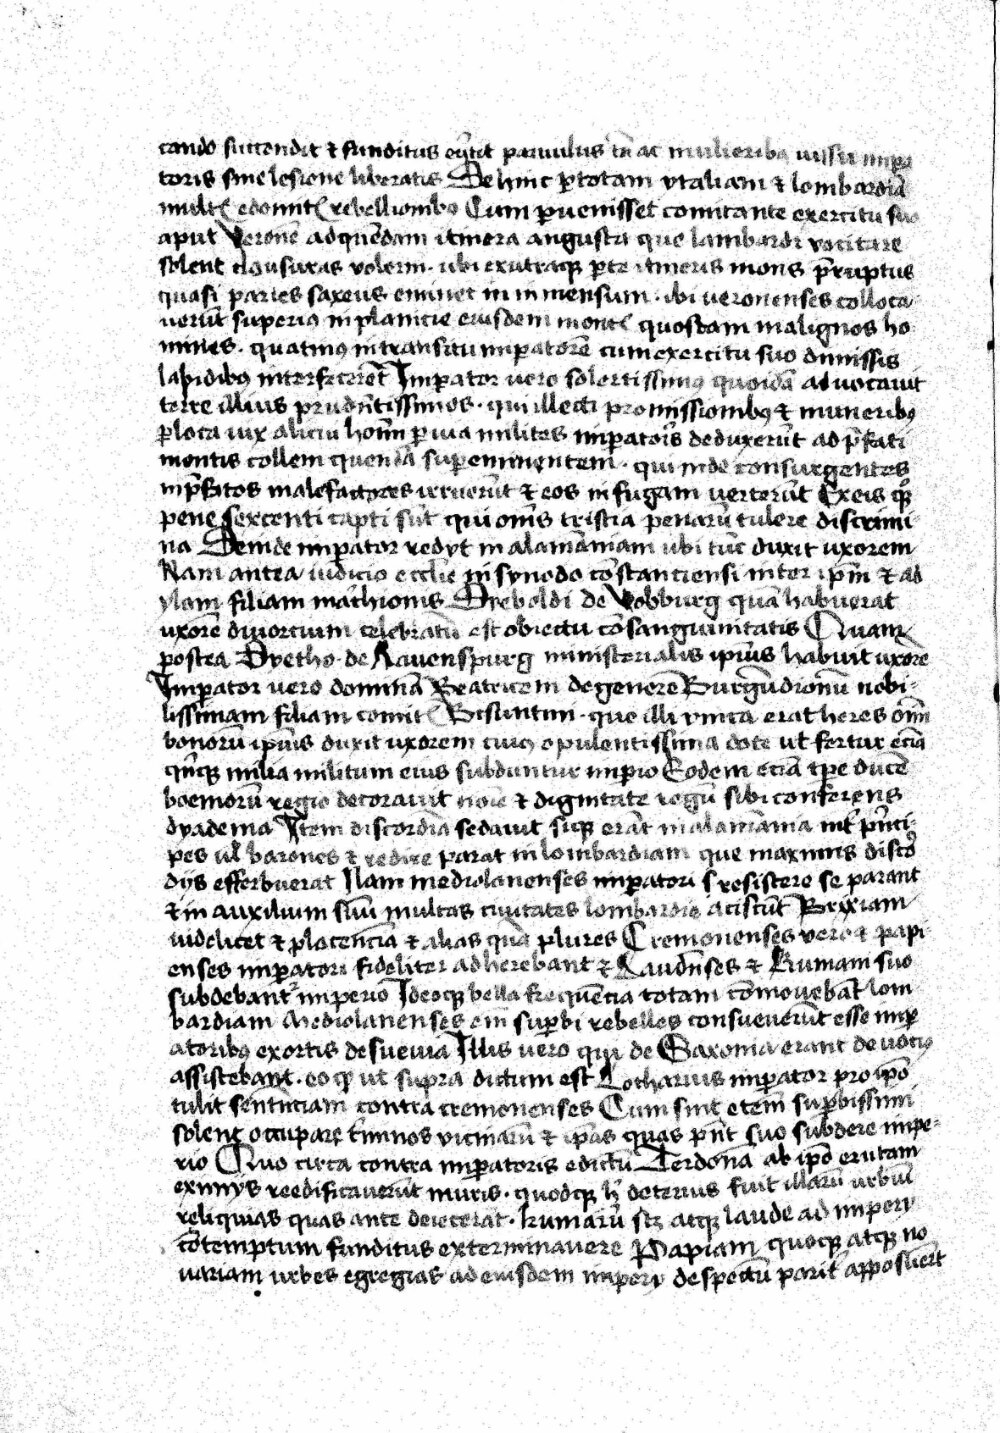 cando succendit ⁊ funditus ev̄tit paruulus tn̄ ac mulieribꝫ iussu impa
toris sine lesione liberatis Dehinc ꝑ totam ytaliam ⁊ lombardiā
multꝭ edomitꝭ rebellionibꝫ Cum ꝑuenisset comitante exercitu suo
aput Veronē ad quendam itinera angusta que lambardi vocitare
solent clausuras volerni · ubi ex utraqꝫ ꝑte itineris mons p̄ruptus
quasi paries saxeus eminet in inmensum · ibi veronenses colloca
uerūt superiꝰ in planicie eiusdem montꝭ quosdam malignos ho
mines · quatinꝰ in transitu imꝑatorē cum exercitu suo dimissis
lapidibꝫ interficerēt Imꝑator vero solertissimꝰ quosdā aduocauit
terre illius prudn̄tissimos · qui illecti promissionibꝫ ⁊ muneribꝫ
ꝑ loca uix alicui hoīni ꝑuia milites imꝑatoris deduxerūt ad p̄fati
montis collem quendā suꝑeminentem · qui inde consurgentes
in p̄fatos malefactores irruerūt ⁊ eos in fugam verterūt Ex eis qͦꝫ
pene sexcenti capti sūt qui om̄s tristia penarū tulere discrimi
na Deinde imꝑator redyt in alamāniam ubi tūc duxit uxorem
Nam antea iudicio eccl̄ie in synodo cōstanciensi inter ip̄m ⁊ ad
ylam filiam marchionis Dyeboldi de Vobburg quā habuerat
uxorē diuorcium celebratū est obiectu cōsanguinitatis Quam
postea Dyetho · de Rauenspurg ministerialis ip̄ius habuit uxorē
Imꝑator vero dominā Beatricem de genere Burgūdionū nobi-
lissimam filiam comitꝭ Bisuntini · que illi vnica erat heres om̄n
bonorū ip̄ius duxit uxorem cuiꝰ opulentissima dote ut fertur eciā
qn̄qꝫ milia militum eius subduntur imꝑio Eodem eciā tp̄e ducē
boemorū regio decorauit noīe ⁊ dignitate regū sibi conferens
dyadema Item discordiā sedauit siqꝫ erāt in alamānia int̄ p̄nci-
pes ul̄ barones ⁊ redire parat in lombardiam que maximis discor
dijs efferbuerat Nam mediolanenses imꝑatori resistere se parant
⁊ in auxilium suū multas ciuitates lombardie asciscūt Brixiam
videlicet ⁊ placenciā ⁊ alias quā plures Cremonenses vero ⁊ papi
enses imꝑatori fideliter adherebant ⁊ Laudn̄ses ⁊ Kumam suo
subdebant imꝑerio Ideoqꝫ bella frequencia totam cōmouebāt lom
bardiam Mediolanenses em̄ suꝑbi rebelles consueuerūt esse imꝑ
atoribꝫ exortis de sueuia Illis vero qui de Saxonia erant deuociꝰ
assistebant · eo qꝫ ut supra dictum est Lotharius imꝑator pro ip̄o
tulit sentenciam contra cremonenses Cum sint etem suꝑbissimi
solent occupare t̄minos vicinarū ⁊ ip̄as quas pn̄t suo subdere impe-
rio Quo circa contra imꝑatoris edictū Terdonā ab ip̄o erutam
eximijs reedificauerūt muris · quodqꝫ h̄ deterius fuit illarū urbiū
reliquias quas ante deiecerāt · kumarū scꝫ atqꝫ laude ad imperij
cōtemptum funditus exterminauere Papiam quoqꝫ atqꝫ no
uariam urbes egregias ad eiusdem imperij despectū parit̄ apposuerūt